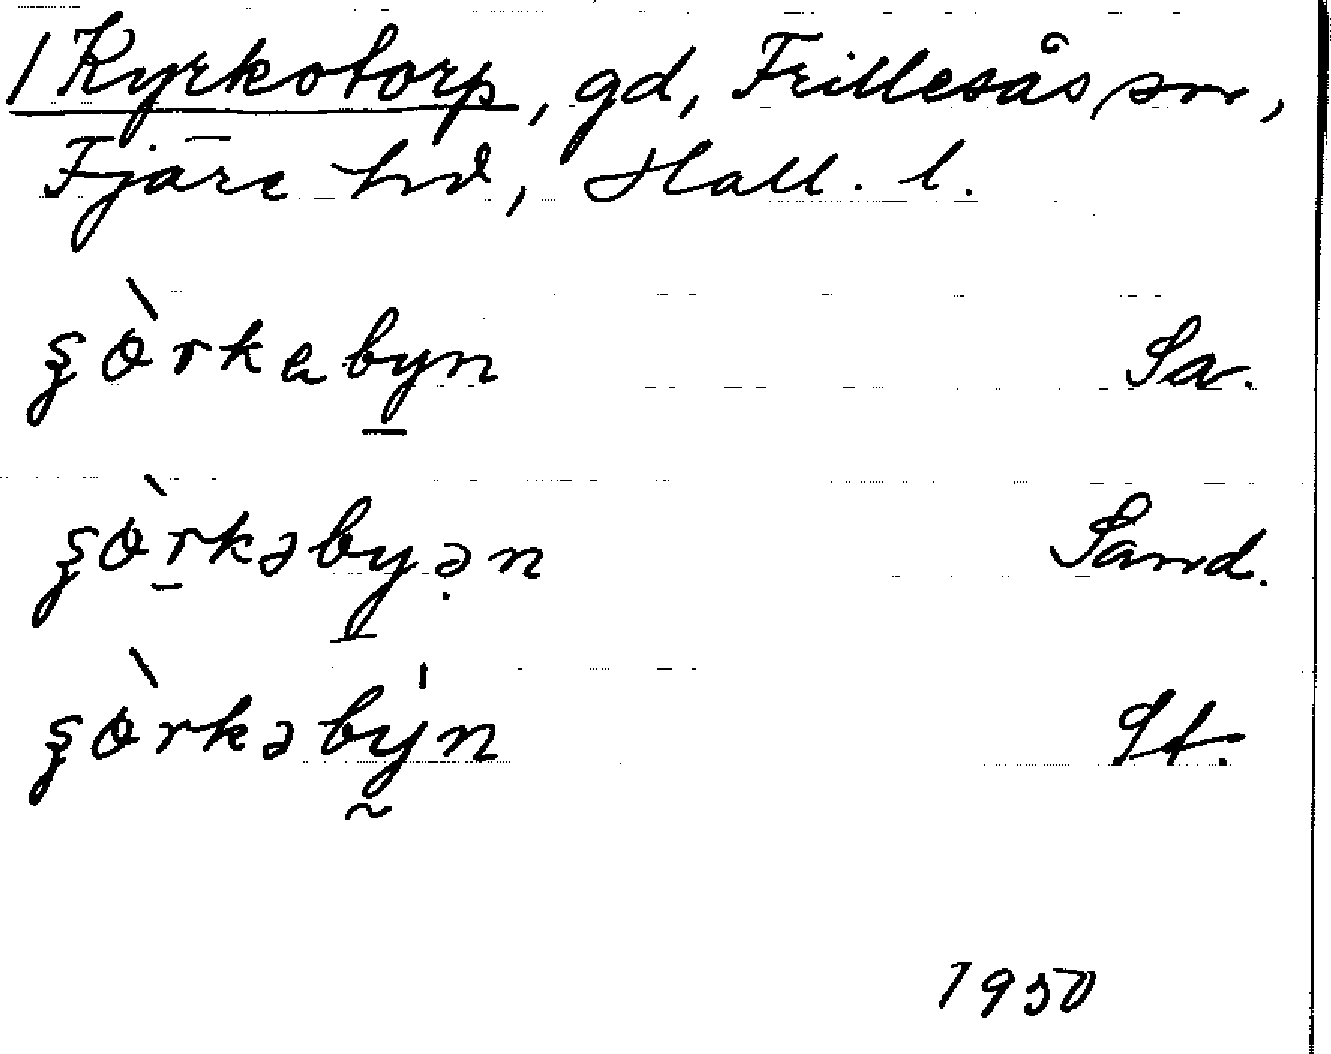 /Kyrkotorp, gd, Frillesås sn,
Fjäre hd, Hall. l.
ʂö̀rkabyn Sa.
ʂö̀rkəbyən Sand.
ʂö̀rkəbýn St.
1950